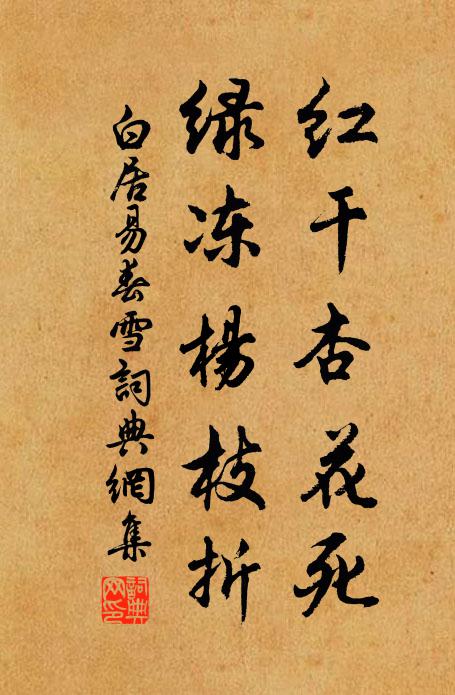 红干杏花死
绿冻杨枝折
白居易春雪詞典網集
詞典网印